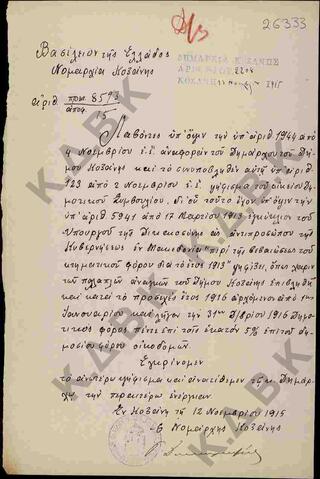 26333
Βασίλειον της Ελλάδος
Νομαρχία Κοζάνης
ΔΗΜΑΡΧΕΙΑ ΚΟΖΑΝΗΣ
ΚΟΖΑΝΗ 1915
αριθ. πρω. 8593
15
Λαβόντες υπ' όψιν την υπ' αριθ. 1944 από
4 Νοεμβρίου ε.έ. αναφοράν του Δημάρχου του Δή-
μου Κοζάνης και το συνυποβληθέν αυτή υπ' αριθ.
123 από 2 Νοεμβρίου ε.έ. ψήφισμα του οικείου Δη-
μοτικού Συμβουλίου, δι' ου τούτο έχον υπ' όψιν την
υπ' αριθ. 5941 από 17 Μαρτίου 1913 εγκύκλιον του
Υπουργού της Δικαιοσύνης ως αντιπροσώπου της
Κυβερνήσεως εν Μακεδονία "περί της βεβαιώσεως του
κτηματικού φόρου δια το έτος 1913" ψηφίζει, όπως χάριν
των πολλαπλών αναγκών του Δήμου Κοζάνης επιβληθή
και κατά το προσεχές έτος 1916 αρχόμενος από 1ης
Ιανουαρίου και λήγων την 31ην Δ/βρίου 1916 Δημο-
τικός φόρος πέντε επί τοις εκατόν 5% επί του δη-
μοσίου φόρου οικοδομών.
Εγκρίνομεν
το ανωτέρω ψήφισμα και ανατίθεμεν τω κ. Δημάρ-
χω την περαιτέρω ενέργειαν.
Εν Κοζάνη τη 12 Νοεμβρίου 1915
Ο Νομάρχης Κοζάνης
Κ.Δ.Β.Κ
Κ.Δ.Β.Κ
Κ.Δ.Β.Κ